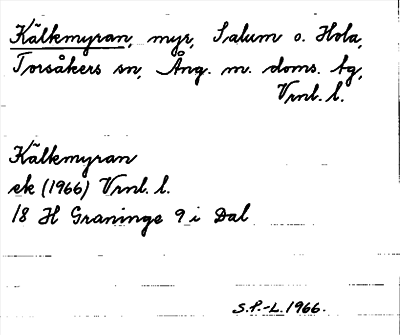 Kälkmyran, myr, Salum o. Hola,
Torsåkers sn, Ång. m. doms. bg,
Vrnl. l.
Kälkmyran
ek (1966) Vrnl. l.
18 H Graninge 9 i Dal
S.P.-L. 1966.